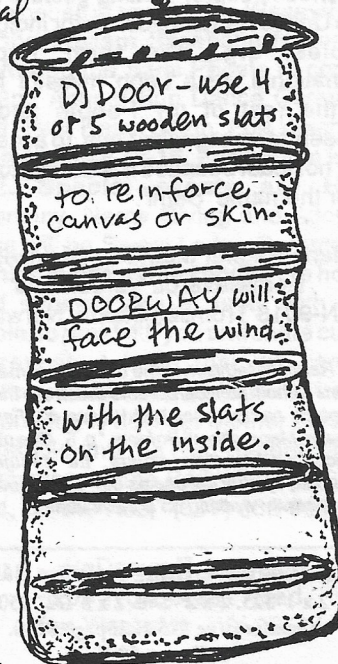 al.
D) Door - use 4
or 5 wooden slats
to reinforce
canvas or skin.
DOORWAY will
face the wind
with the slats
on the inside.